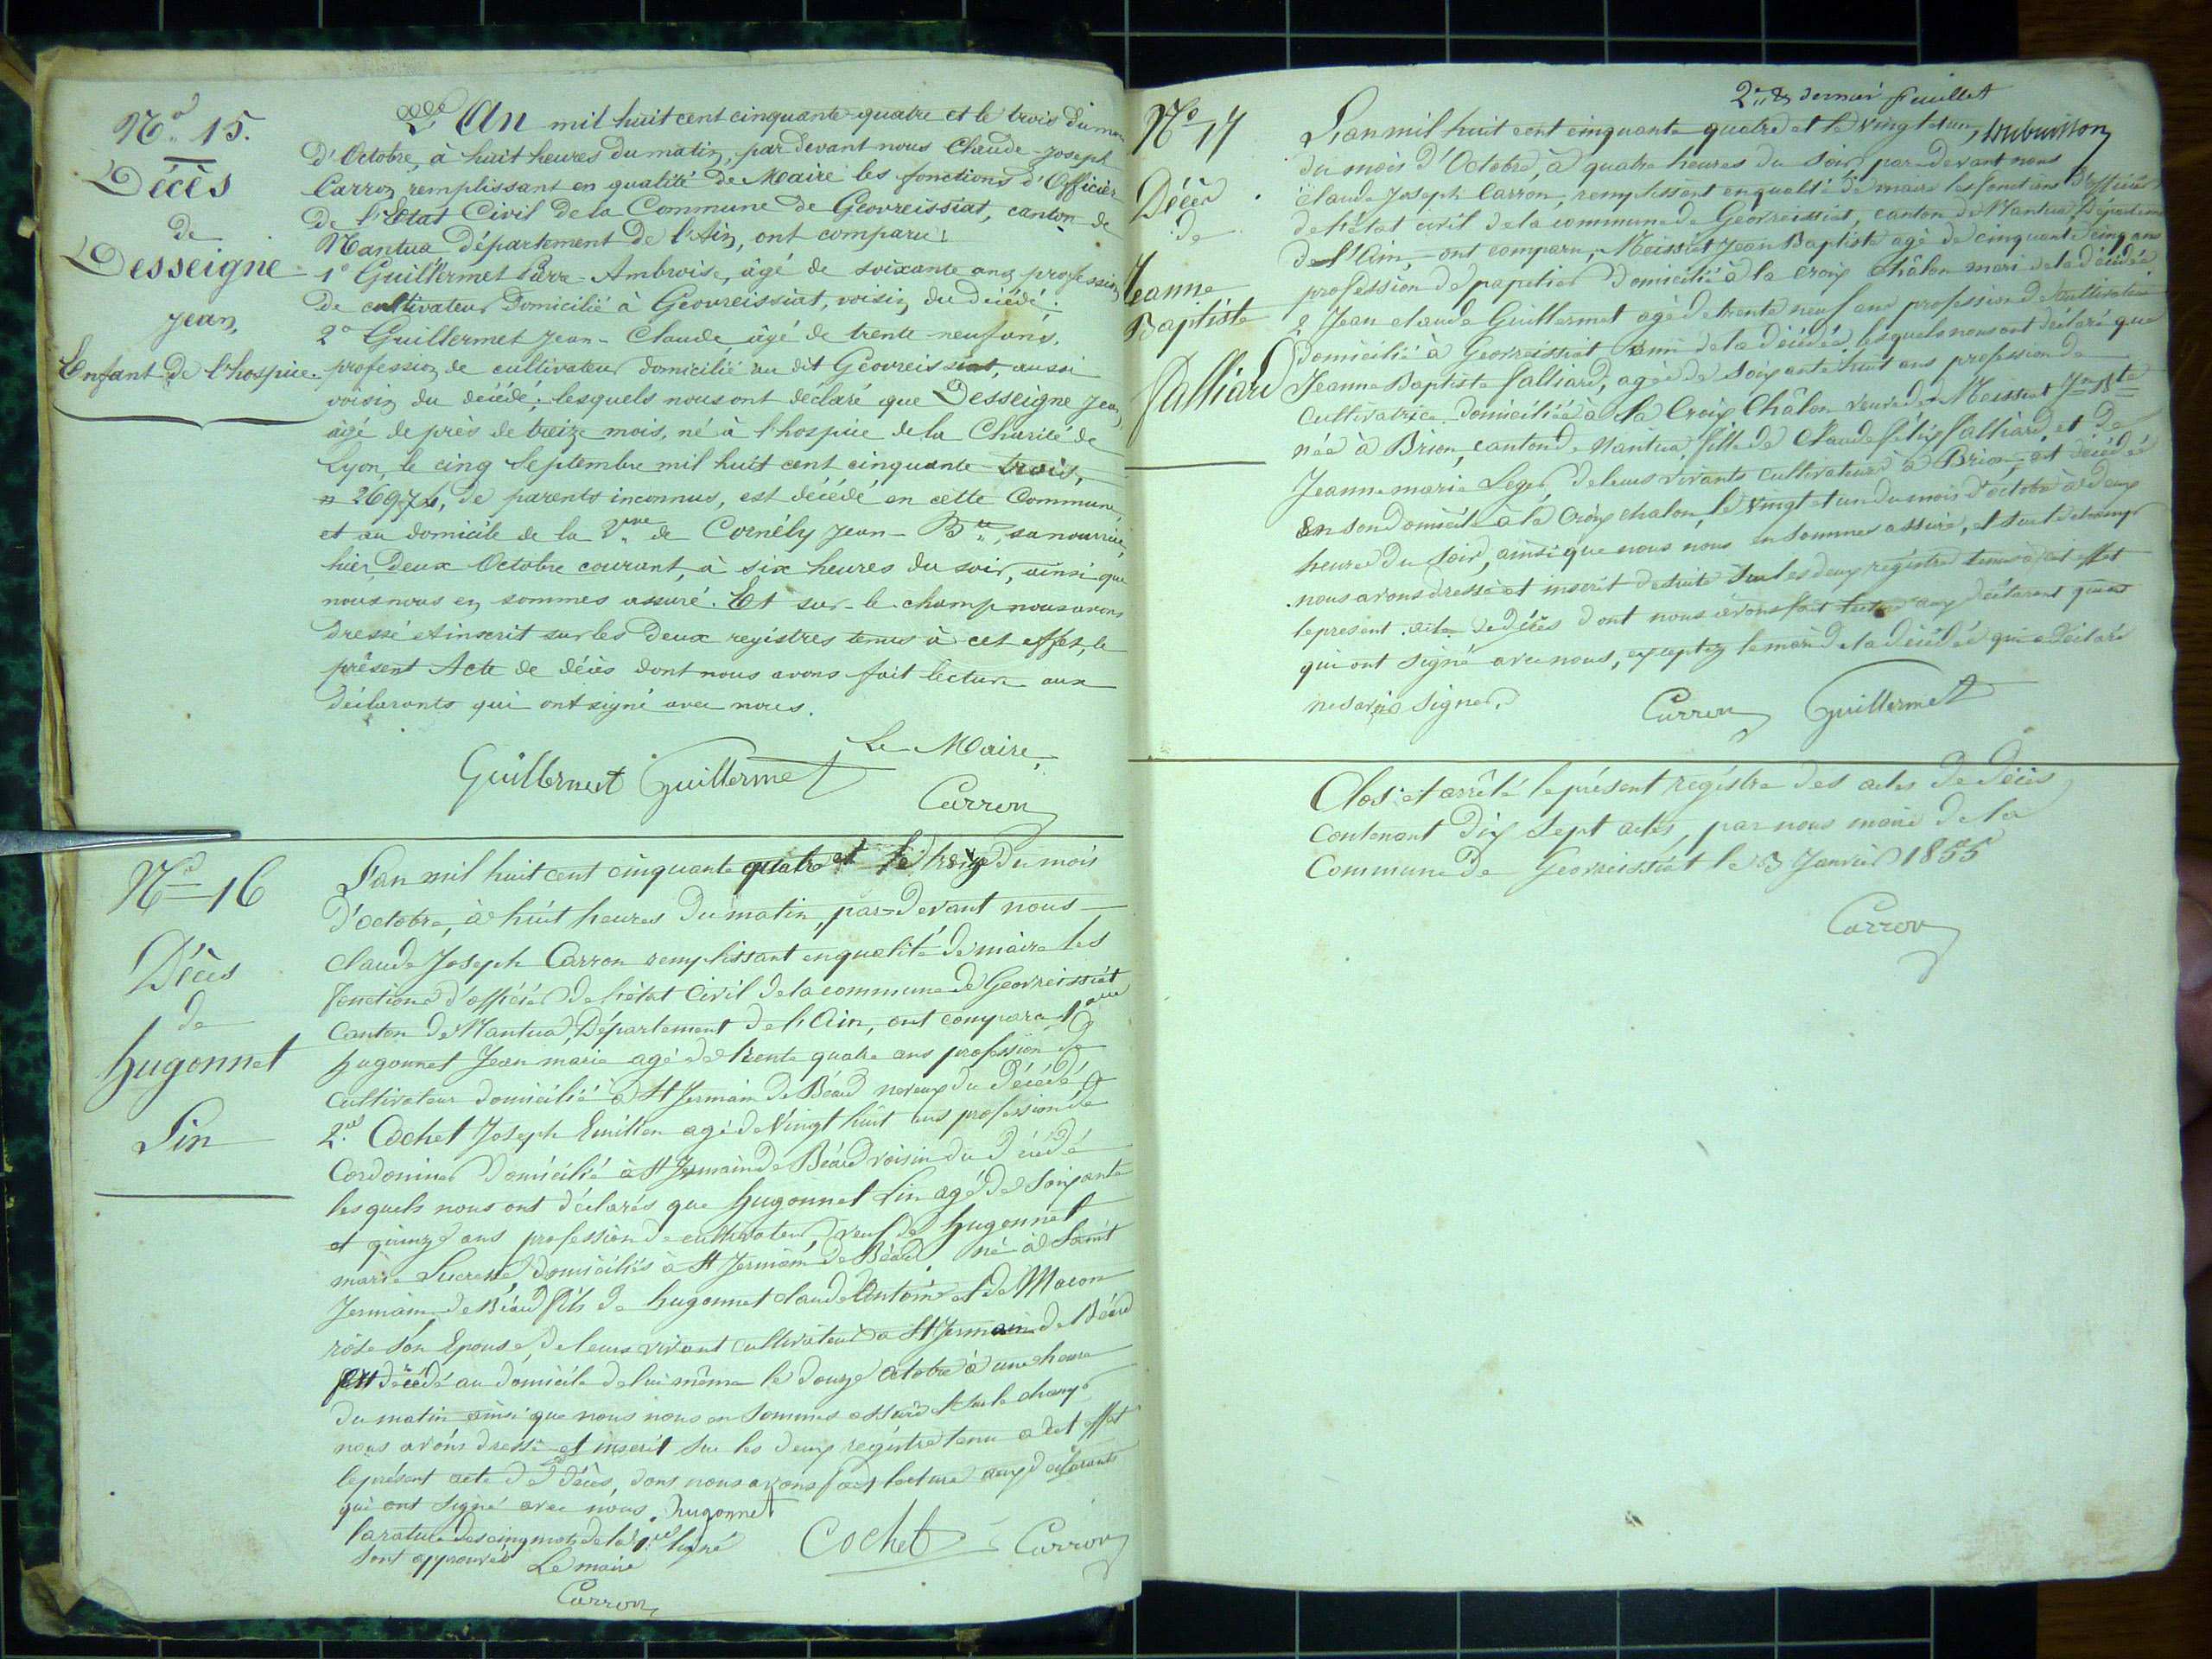 N.o 15.
Décès
de
Desseigne
Jean,
Enfant de l'hospice.
L'An mil huit cent cinquante-quatre et le trois du mois
d'Octobre, à huit heures du matin, par devant nous Claude-Joseph
Carron remplissant en qualité de Maire les fonctions d'Officier
de l'Etat Civil de la Commune de Géovreissiat, canton de
Nantua Département de l'Ain, ont comparu:
1o Guillermet Pierre-Ambroise, âgé de soixante ans profession
de cultivateur domicilié à Géovreissiat, voisin du décédé.
2o Guillermet Jean-Claude âgé de trente-neuf ans,
profession de cultivateur domicilié au dit Géovreissiat, aussi
voisin du décédé; lesquels nous ont déclaré que Desseigne Jean
âgé de près de treize mois, né à l'hospice de la Charité de
Lyon, le cinq Septembre mil huit cent cinquante-trois,
n 26974, de parents inconnus, est décédé en cette Commune,
et au domicile de la Vve de Cornély Jean-Bte, sa nourrice,
hier, deux Octobre courant, à six heures du soir, ainsi que
nous nous en sommes assuré. Et sur-le-champ nous avons
dressé et inscrit sur les deux registres tenus à cet effet, le
présent Acte de décès dont nous avons fait lecture aux
déclarants qui ont signé avec nous.
Le Maire,
Guillermet Guillermet
Carron
No 16
Décès
de
hugonnet
Lin
L'an mil huit cent cinquante quatre et le treize du mois
d'octobre, à huit heures du matin, par-devant nous
Claude Joseph Carron remplissant en qualité de maire les
fonctions d'officier de l'état Civil de la commune de Géovreissiat
Canton de Nantua, Département de l'Ain, ont comparu 1
hugonnet Jean marie agé de trente quatre ans profession de
Cultivateur domicilié à St Jermain de Béard neveux du décédé
2. Cochet Joseph Emilien agé de vingt huit ans profession de
Cordonnier domicilié à St Jermain de Béard voisin du décédé
lesquels nous ont déclarés que hugonnet Lin agé de soixante
et quinze ans profession de cultivateur, veuf de hugonnet
marie Lucresse, domiciliés à St Jermain de Béard né à Saint
Jermain de Béard fils de hugonnet claude Antoine et de Macon
rose son Epouse, de leurs vivant cultivateur à St Jermain de Béard
est décédé au domicile de lui même le douze octobre à une heure
du matin ainsi que nous nous en sommes assuré et sur le champ
nous avons dressé et inscrit sur les deux registre tenu à cet effet
le présent acte de décès, dont nous avons fait lecture aux déclarants
qui ont signé avec nous. hugonnet
la rature des cinq mots de la ligne
sont approuvés
Le maire
Carron
Cochet
Carron
2.e & dernier feuillet
Soubuisson
No 17
Décès
de
Jeanne
Baptiste
Jalliard
L'an mil huit cent cinquante quatre et le vingt et un
du mois d'Octobre, à quatre heures du soir par-devant nous
Claude Joseph Carron, remplissant en qualité de maire les fonctions d'officier
de l'état civil de la commune de Géovreissiat, canton de Nantua Département
de l'Ain, ont comparu, Maissiat Jean Baptiste agé de cinquante cinq ans
profession de papetier domicilié à la croix Châlon mari de la décédée
2 Jean claude Guillermet agé de trente neuf ans profession de cultivateur
domicilié à Géovreissiat ami de la décédée, lesquels nous ont déclaré que
Jeanne Baptiste Jalliard, agée de soixante huit ans profession de
Cultivatrice domiciliée à la Croix Châlon veuve de Maissiat Jn Bte
née à Brion, canton de Nantua, fille de Claude félix Jalliard, et de
Jeanne marie Leger, de leurs vivants cultivateurs à Brion, est décédée
En son domicile à la Croix chalon, le vingt et un du mois d'octobre à deux
heures du soir, ainsi que nous nous en sommes assuré, et sur le champ
nous avons dressé et inscrit de suite sur les deux régistre tenus à cet effet
le présent acte de décès dont nous avons fait lecture aux déclarant
qui ont signé avec nous, excepter le mari de la décédée qui a déclaré
ne savoir signer.
Carron Guillermet
Clos et arrêté le présent registre des actes de décès
Contenant dix sept actes, par nous maire de la
Commune de Géovreissiat le 3 Janvier 1855
Carron